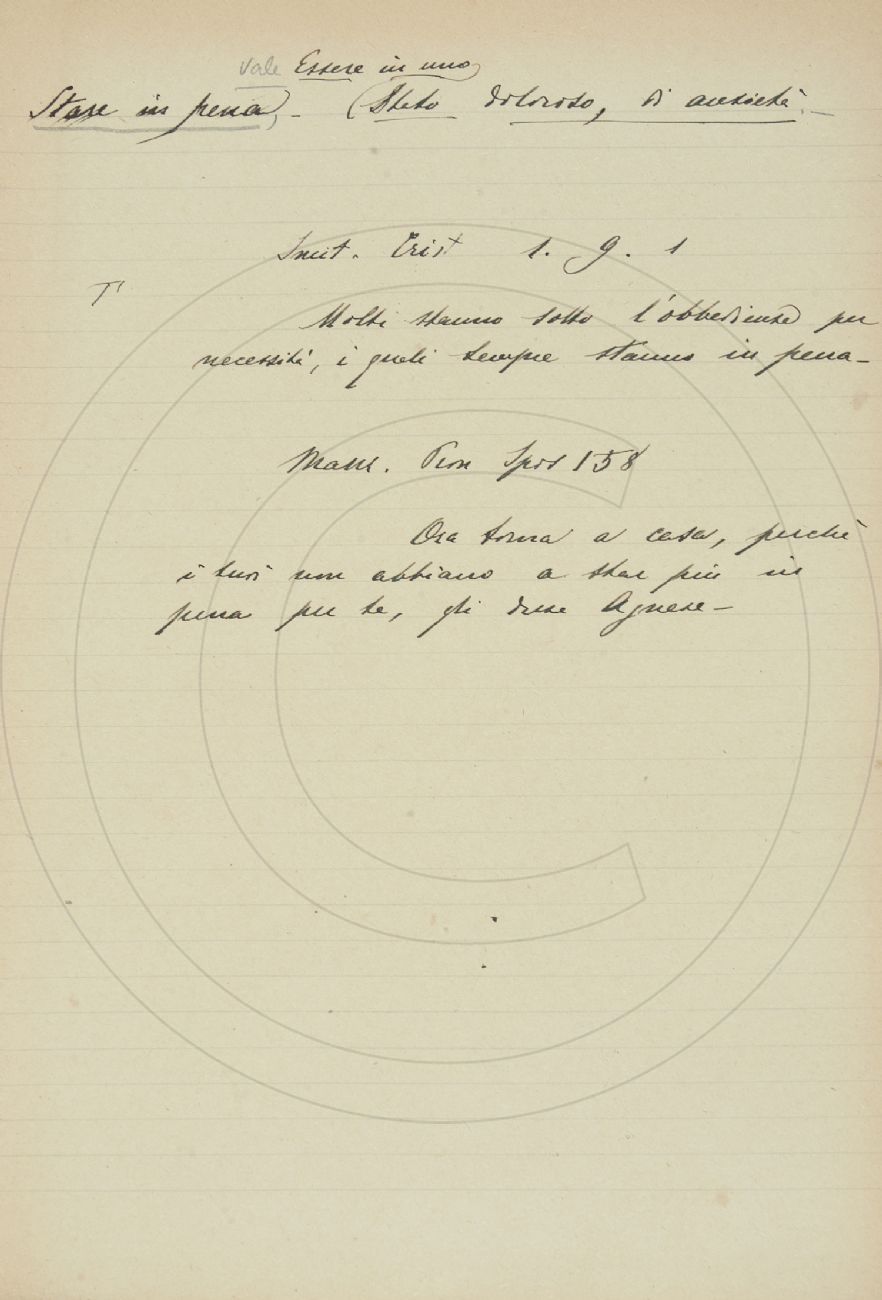 vale Essere in uno
Stare in pena, - (Stato doloroso, di ansietà. -
Imit. Crist 1. 9. 1
T'
Molti stanno sotto l'obbedienza per
necessità, i quali sempre stanno in pena -
Manz. Prom Spos 158
Ora torna a casa, perchè
i tuoi non abbiano a star più in
pena per te, gli disse Agnese -